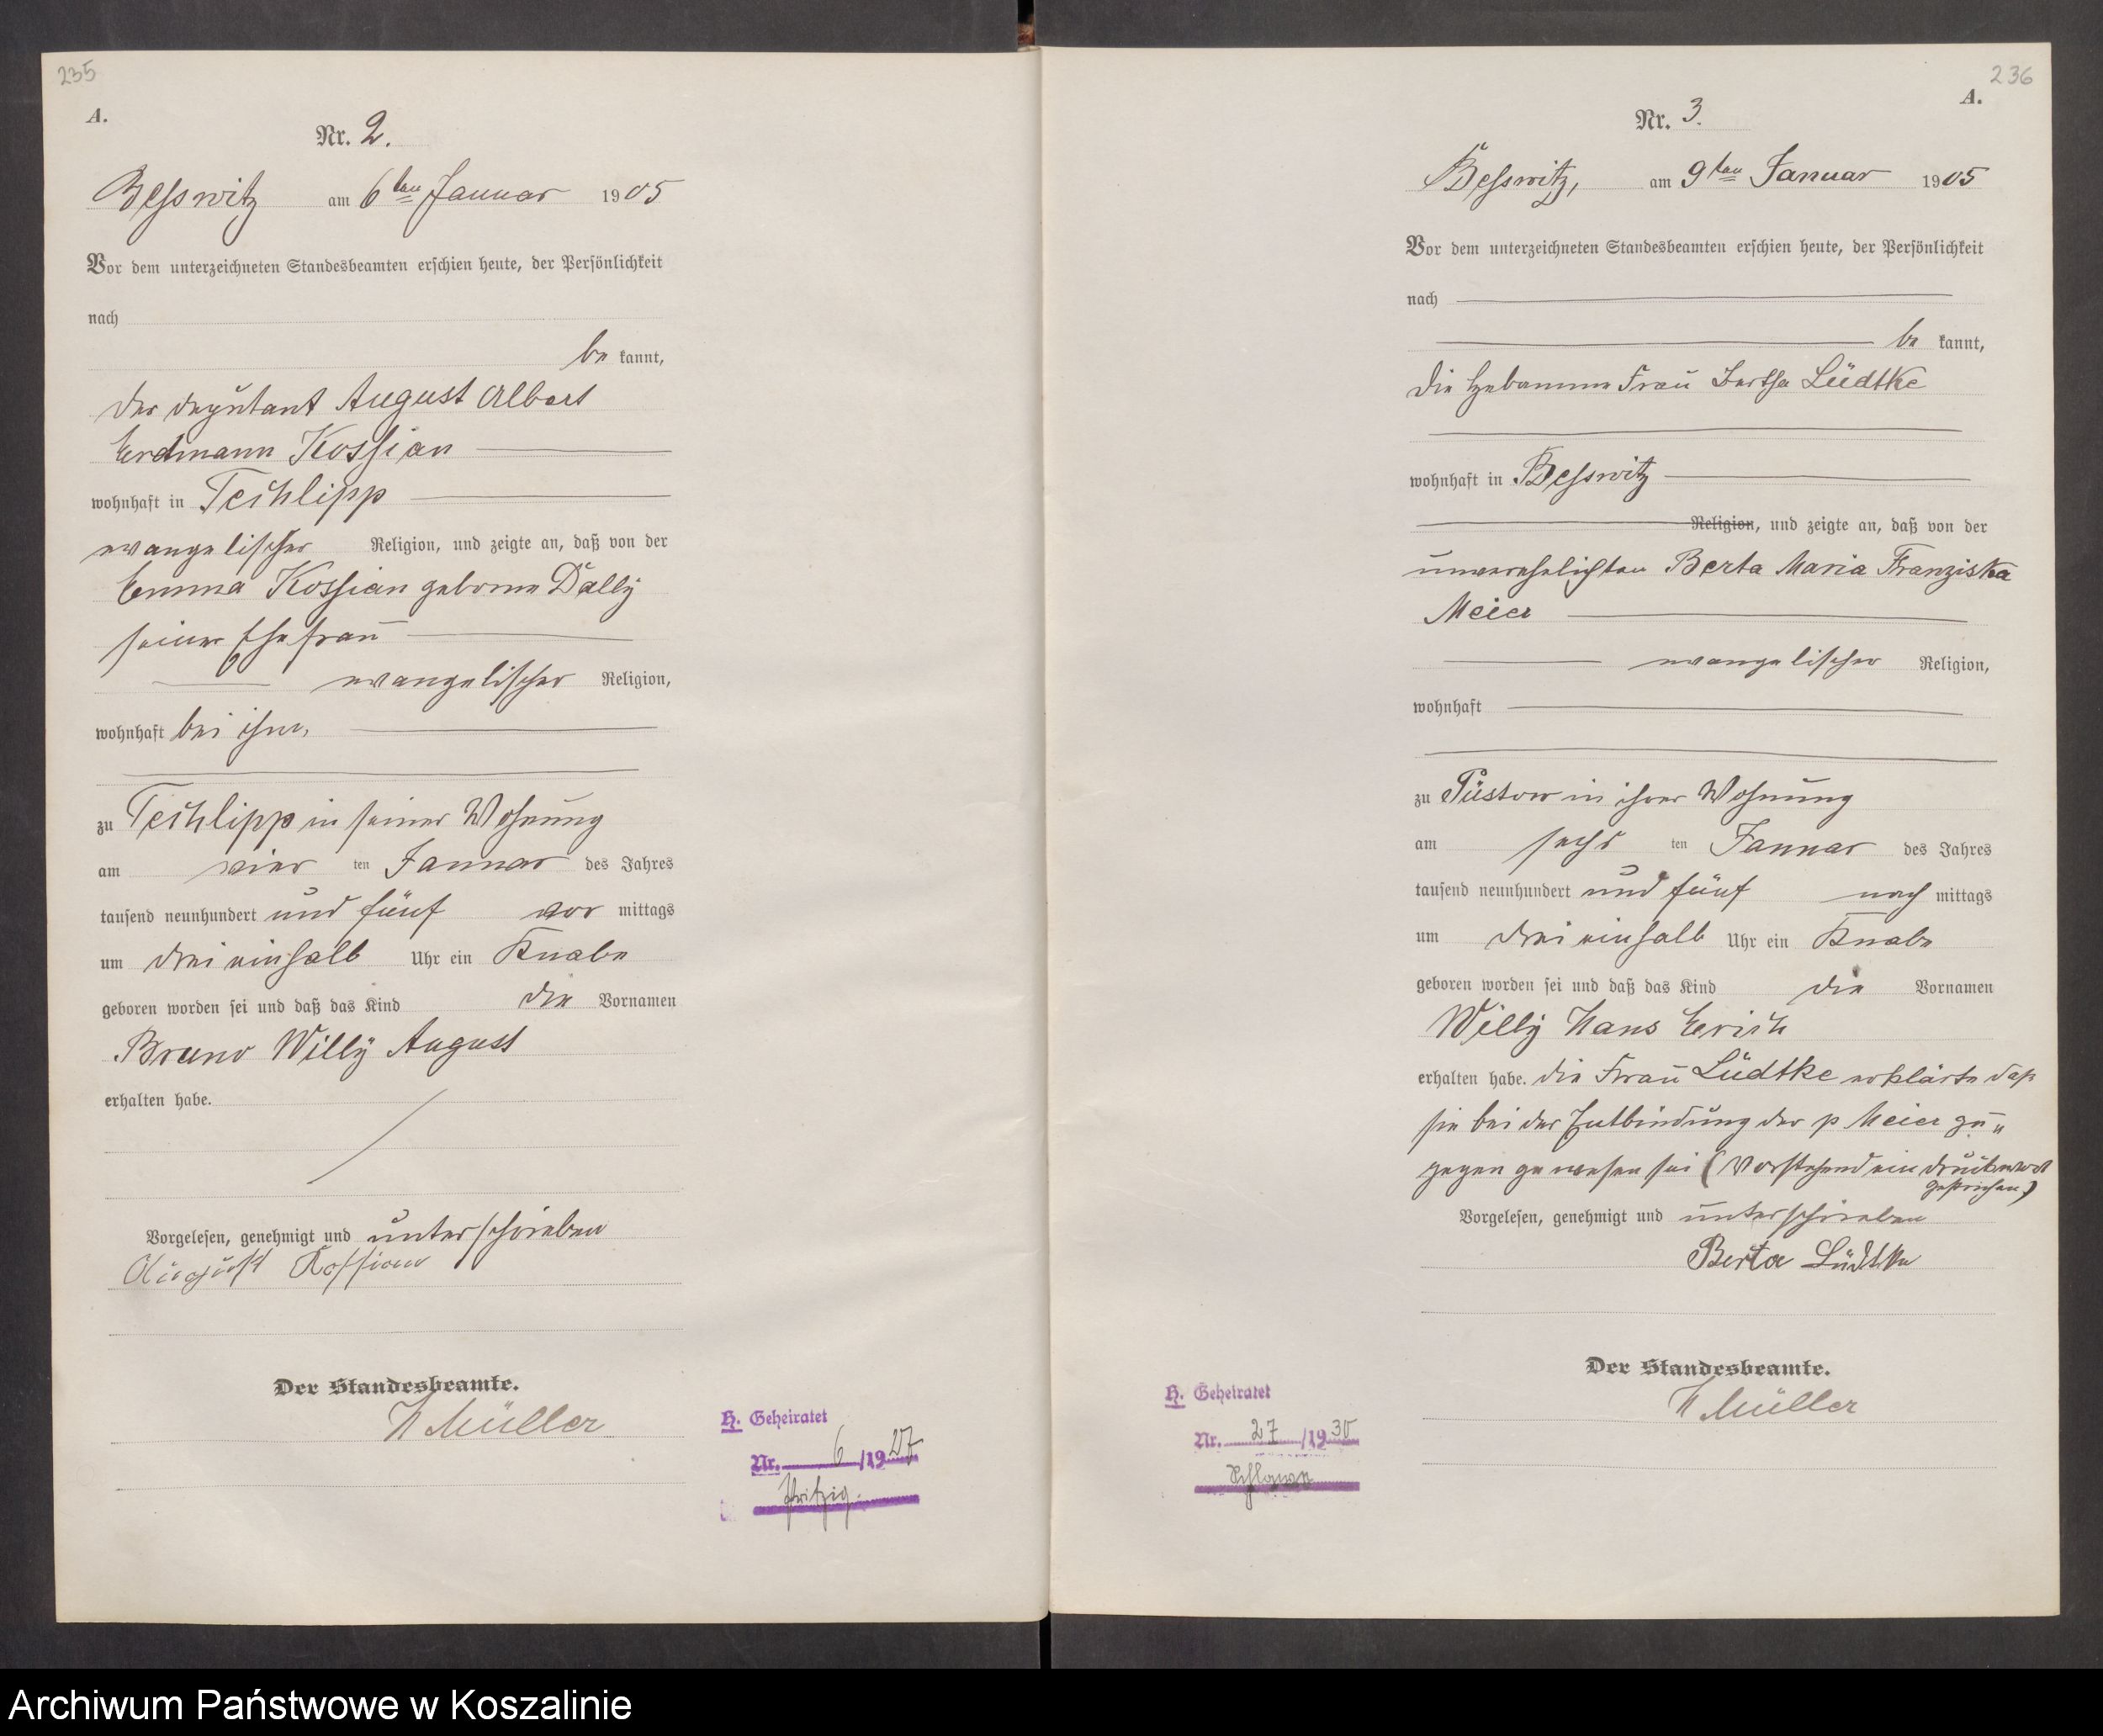 235
A.
Nr. 2.
Besswitz am 6ten Januar 1905
Vor dem unterzeichneten Standesbeamten erschien heute, der Persönlichkeit
nach
be kannt,
der Deputant August Albert
Erdmann Kossian
wohnhaft in Techlipp
evangelischer Religion, und zeigte an, daß von der
Emma Kossian geborene Dally
seiner Ehefrau
evangelischer Religion,
wohnhaft bei ihm,
zu Techlipp in seiner Wohnung
am vier ten Januar des Jahres
tausend neunhundert und fünf vor mittags
um drei einhalb Uhr ein Knabe
geboren worden sei und daß das Kind die Vornamen
Bruno Willy August
erhalten habe.
Vorgelesen, genehmigt und unterschrieben
August Kossian
Der Standesbeamte.
H Müller
H. Geheiratet
Nr. 6/1927
Pritzig.
236
A.
Nr. 3.
Besswitz, am 9ten Januar 1905
Vor dem unterzeichneten Standesbeamten erschien heute, der Persönlichkeit
nach
be kannt,
die Hebamme Frau Bertha Lüdtke
wohnhaft in Besswitz
Religion, und zeigte an, daß von der
unverehelichten Berta Maria Franziska
Meier
evangelischer Religion,
wohnhaft
zu Püstow in ihrer Wohnung
am sechs ten Januar des Jahres
tausend neunhundert und fünf nach mittags
um drei einhalb Uhr ein Knabe
geboren worden sei und daß das Kind die Vornamen
Willy Hans Erich
erhalten habe. die Frau Lüdtke erklärte daß
sie bei der Entbindung der p Meier zu„
gegen gewesen sei (Vorstehend ein Druckwort
gestrichen)
Vorgelesen, genehmigt und unterschrieben
Berta Lüdtke
Der Standesbeamte.
H Müller
H. Geheiratet
Nr. 27/1930
Schlawe
Archiwum Państwowe w Koszalinie